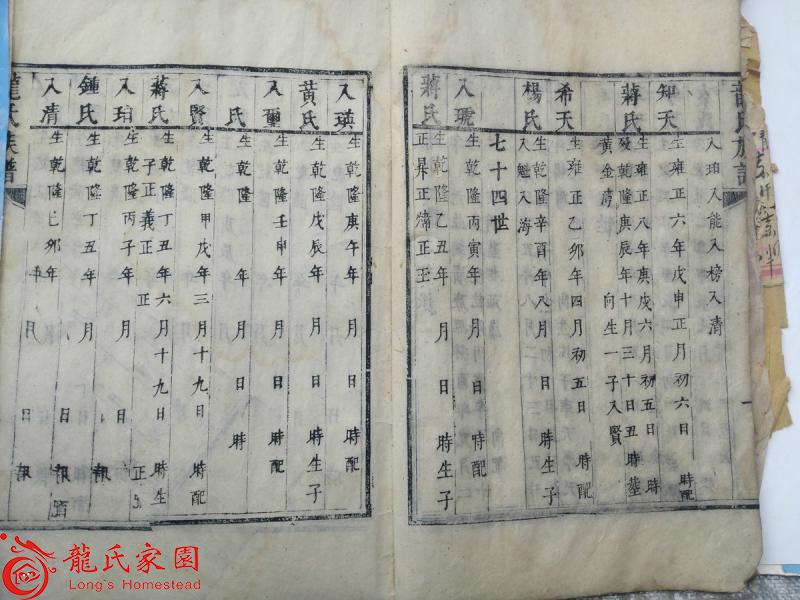 龍氏族譜
入珀入能入榜入清
知天
生雍正六年戊申正月初六日 時配
蔣氏
生雍正八年庚戍六月初五日 時
歿乾隆庚辰年十月三十日丑時塟
黃金灣 向生一子入賢
希天
生雍正乙卯年四月初五日 時配
楊氏
生乾隆辛酉年八月 日 時生子
入魁入海
七十四世
入琥
生乾隆丙寅年 月 日 時配
蔣氏
生乾隆乙丑年 月 日 時生子
正昇正 正玉
入瑛
生乾隆庚午年 月 日 時配
黃氏
生乾隆戊辰年 月 日 時生子
入璽
生乾隆壬申年 月 日 時配
氏
生乾隆 年 月 日 時
入賢
生乾隆甲戍年三月十九日 時配
蔣氏
生乾隆丁丑年六月十九日 時生
子正義正 正 正
入珀
生乾隆丙子年 月 日
鍾氏
生乾隆丁丑年 月 日
入清
生乾隆己卯年 月 日
龍氏族譜
龍氏家園
Long's Homestead